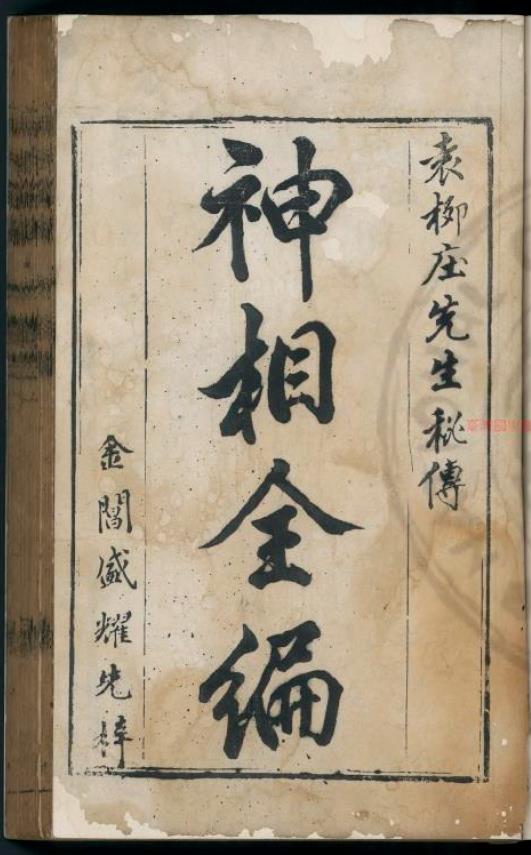 袁柳庄先生秘傳
神相全編
金閶盛耀先梓